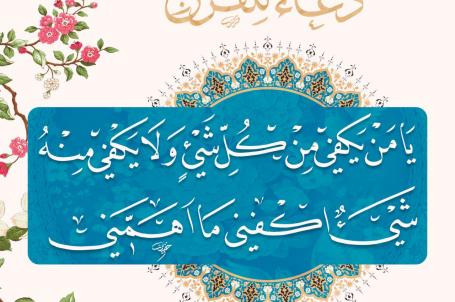 يَا مَنْ يَكْفِي مِنْ كُلِّ شَيْءٍ وَلَا يَكْفِي مِنْهُ
شَيْءٌ اكْفِنِي مَا أَهَمَّنِي